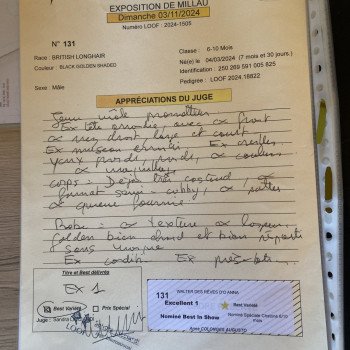 EXPOSITION DE MILLAU
Dimanche 03/11/2024
Numéro LOOF : 2024-1505
N° 131
Classe : 6-10 Mois
Race : BRITISH LONGHAIR
Né(e) le 04/03/2024 (7 mois et 30 jours)
Couleur : BLACK GOLDEN SHADED
Identification : 250 269 591 005 825
Pedigree : LOOF 2024.18822
Sexe : Mâle
APPRÉCIATIONS DU JUGE
Jeune mâle prometteur
Ex tête arrondie avec ex front
ex nez front large et court
Ex museau arrondi Ex oreilles
Yeux ronds, ex couleur
corps = Déjà très costaud, Ex
format semi-cobby, ex pattes
ex queue fournie
Robe = ex texture ex longueur
golden bien chaud et bien réparti
sans
Ex condit. Ex présentat.
Titre et Best délivrés
EX 1
Best Variété
Prix Spécial
Juge :
LOOF
131
WALTER DES RÊVES D'ANNA
Excellent 1
Best Variété
Nominé Best in Show
Nominé Spéciale Chatons 6/10 mois
COLONGES AUGUSTO